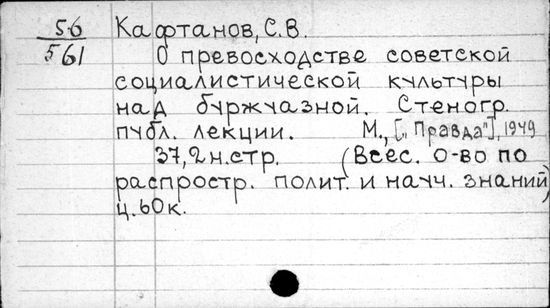 56
561
Кафтанов, С. В.
О превосходстве советской
социалистической культуры
над буржуазной. Стеногр.
публ. лекции. М., ["Правда"], 1949
37, 2 н. стр. (Всес. о-во по
распростр. полит. и науч. знаний)
ц. 60 к.